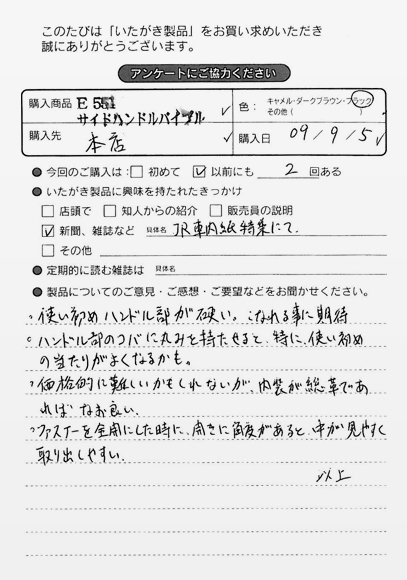 このたびは「いたがき製品」をお買い求めいただき
誠にありがとうございます。
アンケートにご協力ください
購入商品 E 551 サイドハンドルバイブル ✓
色： キャメル・ダークブラウン・ブラック
その他（ ）
購入先 本店 ✓
購入日 09/9/5 ✓
● 今回のご購入は： □ 初めて ☑ 以前にも 2 回ある
● いたがき製品に興味を持たれたきっかけ
□ 店頭で □ 知人からの紹介 □ 販売員の説明
☑ 新聞、雑誌など 具体名 JR車内紙特集にて.
□ その他
● 定期的に読む雑誌は 具体名
● 製品についてのご意見・ご感想・ご要望などをお聞かせください。
○ 使い初めハンドル部が硬い。こなれる事に期待
○ ハンドル部のコバに丸みを持たせると、特に、使い初め
の当たりがよくなるかも。
○ 価格的に難しいかもしれないが、内装が総革であ
れば なお良い.
○ ファスナーを全開にした時に、開きに角度があると、中が見やすく
取り出しやすい.
以上